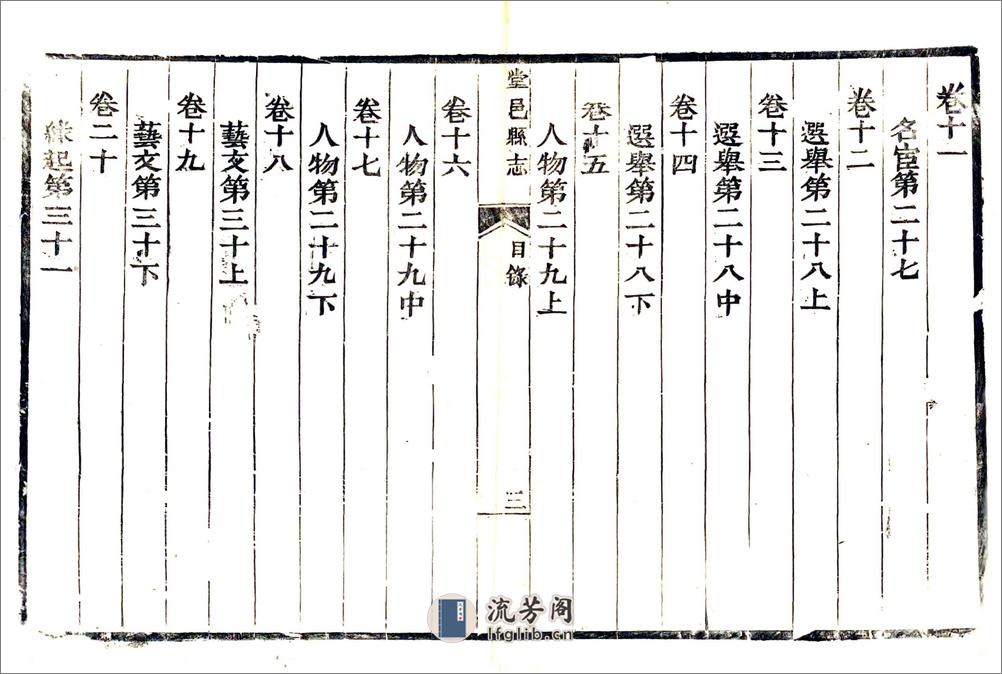 卷十一
名宦第二十七
卷十二
選舉第二十八上
卷十三
選舉第二十八中
卷十四
選舉第二十八下
卷十五
人物第二十九上
堂邑縣志
目錄
三
卷十六
人物第二十九中
卷十七
人物第二十九下
卷十八
藝文第三十上
卷十九
藝文第三十下
卷二十
緣起第三十一
流芳阁
lfglib.cn